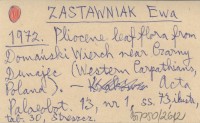 ZASTAWNIAK Ewa
1972. Pliocene leaf flora from
Domański Wierch near Czarny
Dunajec (Western Carpathians,
Poland). – Acta
Palaeobot. 13, nr 1, ss. 73, ilustr.,
tabl. 30, streszcz.